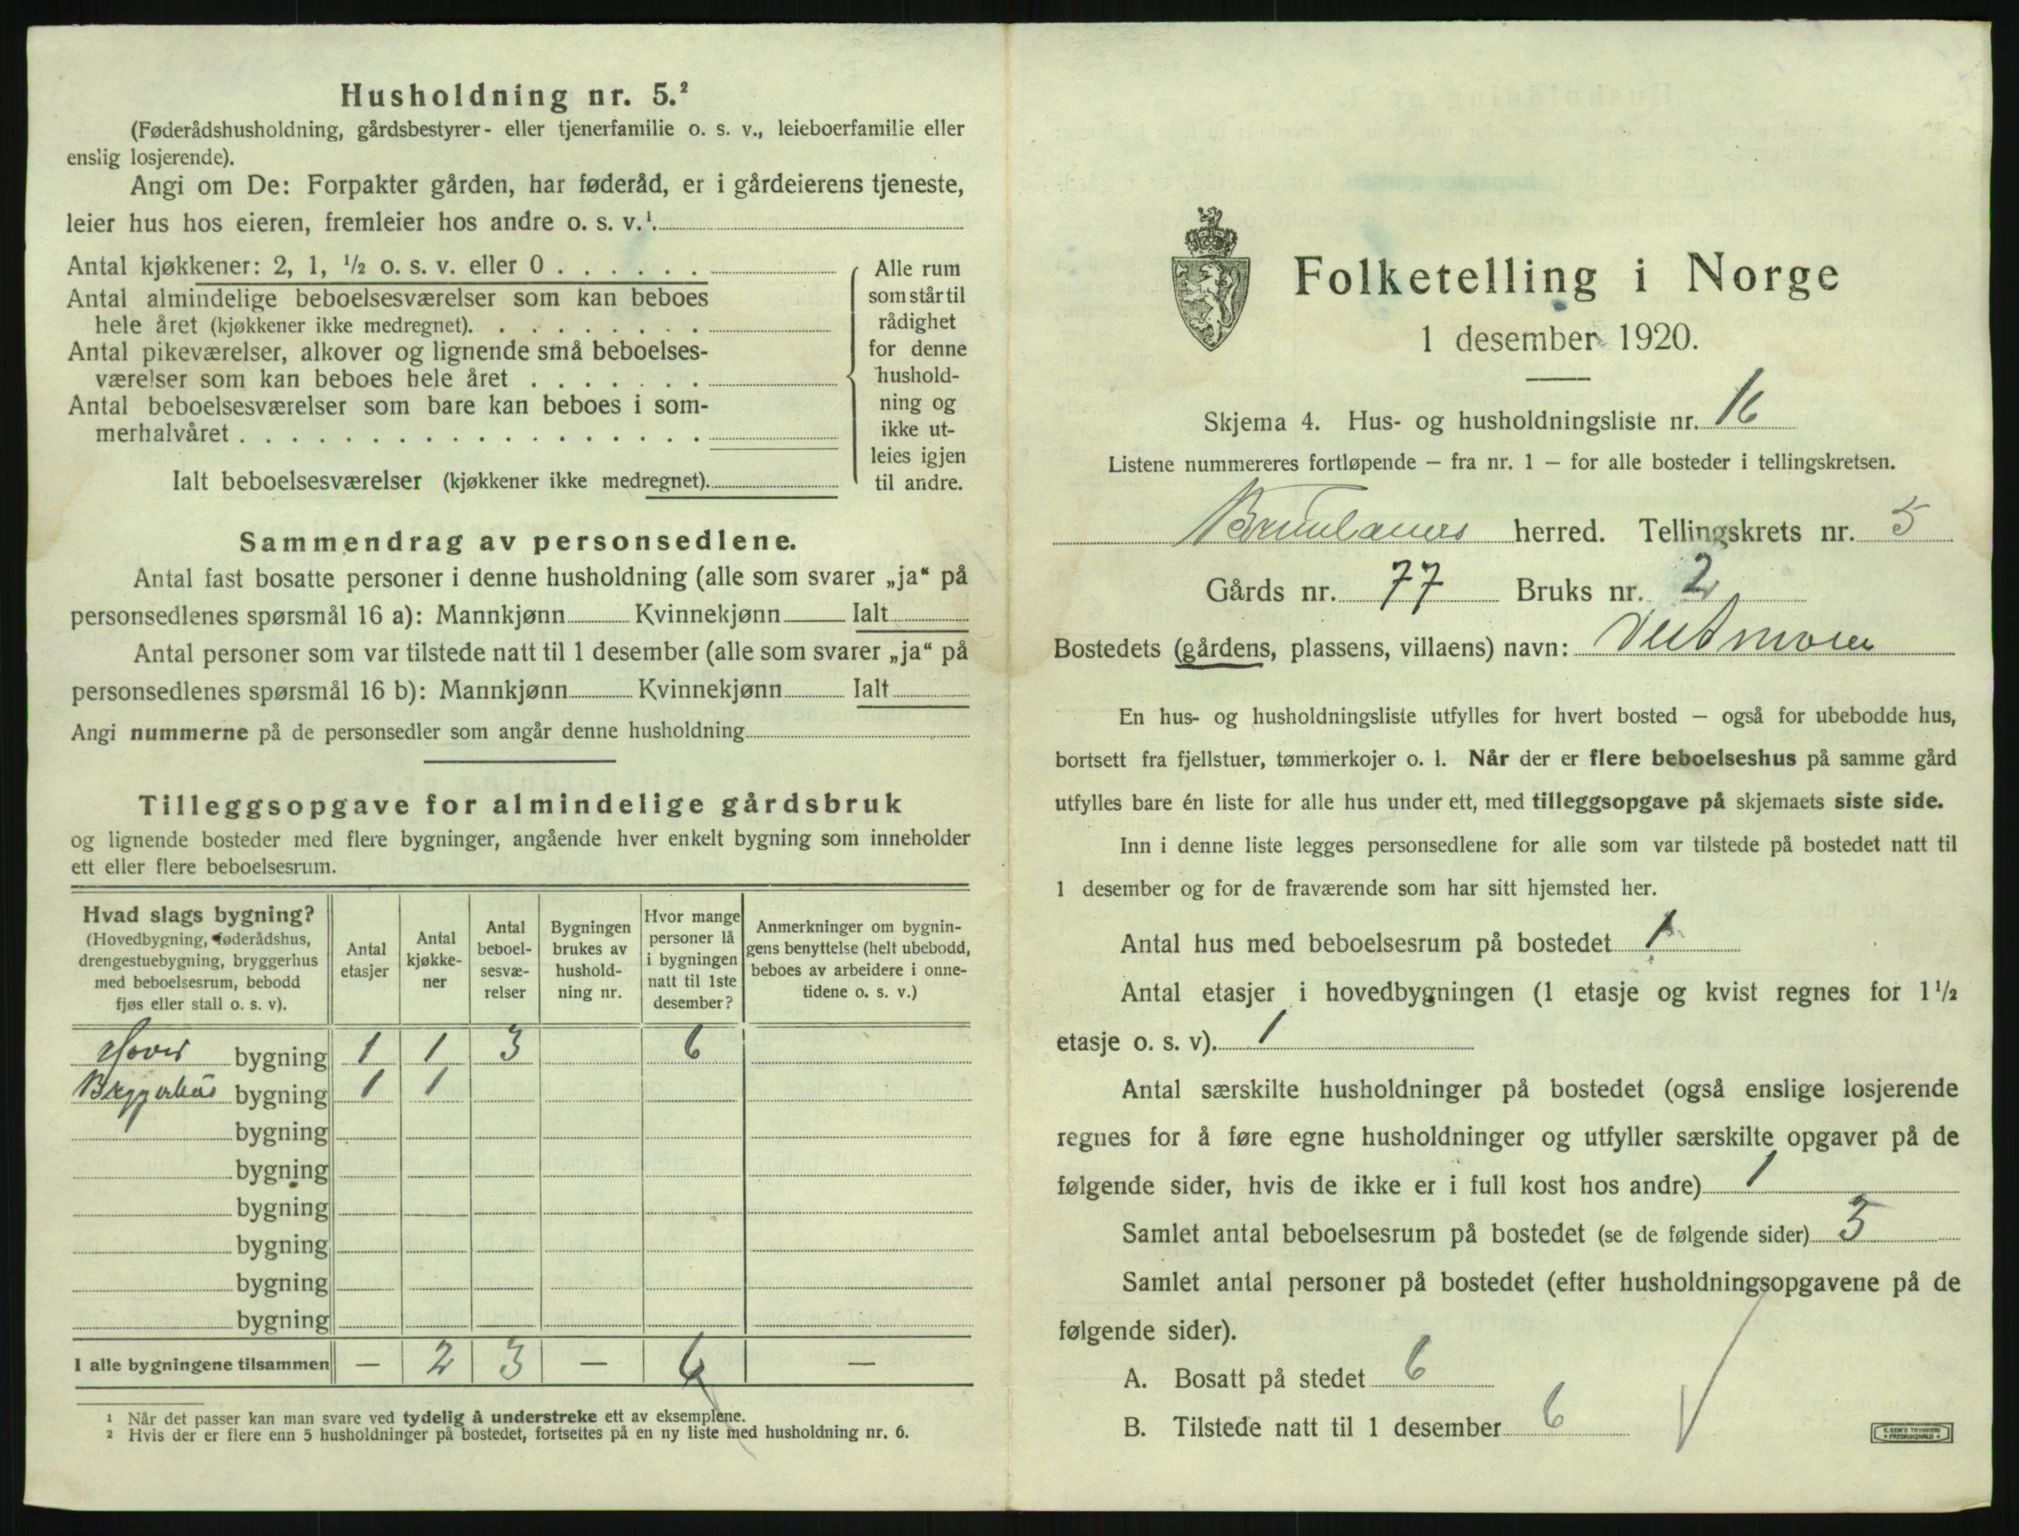 Husholdning nr. 5.²
(Føderådshusholdning, gårdsbestyrer- eller tjenerfamilie o. s. v., leieboerfamilie eller
enslig losjerende).
Angi om De: Forpakter gården, har føderåd, er i gårdeierens tjeneste,
leier hus hos eieren, fremleier hos andre o. s. v.¹
Antal kjøkkener: 2, 1, ½ o. s. v. eller 0 . . . . . .
Antal almindelige beboelsesværelser som kan beboes
hele året (kjøkkener ikke medregnet). . . . . . . . .
Antal pikeværelser, alkover og lignende små beboelses-
værelser som kan beboes hele året . . . . . . .
Antal beboelsesværelser som bare kan beboes i som-
merhalvåret . . . . . . . . . . . . . . . . . .
Ialt beboelsesværelser (kjøkkener ikke medregnet).
Alle rum
som står til
rådighet
for denne
hushold-
ning og
ikke ut-
leies igjen
til andre.
Sammendrag av personsedlene.
Antal fast bosatte personer i denne husholdning (alle som svarer „ja“ på
personsedlenes spørsmål 16 a): Mannkjønn Kvinnekjønn Ialt
Antal personer som var tilstede natt til 1 desember (alle som svarer „ja“ på
personsedlenes spørsmål 16 b): Mannkjønn Kvinnekjønn Ialt
Angi nummerne på de personsedler som angår denne husholdning
Tilleggsopgave for almindelige gårdsbruk
og lignende bosteder med flere bygninger, angående hver enkelt bygning som inneholder
ett eller flere beboelsesrum.
Hvad slags bygning?
(Hovedbygning, føderådshus,
drengestuebygning, bryggerhus
med beboelsesrum, bebodd
fjøs eller stall o. s. v).
Antal
etasjer
Antal
kjøkke-
ner
Antal
beboel-
sesvæ-
relser
Bygningen
brukes av
hushold-
ning nr.
Hvor mange
personer lå
i bygningen
natt til 1ste
desember?
Anmerkninger om bygnin-
gens benyttelse (helt ubebodd,
beboes av arbeidere i onne-
tidene o. s. v.)
Hoved bygning 1 1 3 6
Bryggerhus bygning 1 1
bygning
bygning
bygning
bygning
bygning
bygning
I alle bygningene tilsammen — 2 3 — 6 —
¹ Når det passer kan man svare ved tydelig å understreke ett av eksemplene.
² Hvis der er flere enn 5 husholdninger på bostedet, fortsettes på en ny liste med husholdning nr. 6.
Folketelling i Norge
1 desember 1920.
Skjema 4. Hus- og husholdningsliste nr. 16
Listene nummereres fortløpende — fra nr. 1 — for alle bosteder i tellingskretsen.
Brunlanes herred. Tellingskrets nr. 5
Gårds nr. 77 Bruks nr. 2
Bostedets (gårdens, plassens, villaens) navn:
En hus- og husholdningsliste utfylles for hvert bosted — også for ubebodde hus,
bortsett fra fjellstuer, tømmerkojer o. l. Når der er flere beboelseshus på samme gård
utfylles bare én liste for alle hus under ett, med tilleggsopgave på skjemaets siste side.
Inn i denne liste legges personsedlene for alle som var tilstede på bostedet natt til
1 desember og for de fraværende som har sitt hjemsted her.
Antal hus med beboelsesrum på bostedet 1
Antal etasjer i hovedbygningen (1 etasje og kvist regnes for 1½
etasje o. s. v). 1
Antal særskilte husholdninger på bostedet (også enslige losjerende
regnes for å føre egne husholdninger og utfyller særskilte opgaver på de
følgende sider, hvis de ikke er i full kost hos andre) 1
Samlet antal beboelsesrum på bostedet (se de følgende sider) 3
Samlet antal personer på bostedet (efter husholdningsopgavene på de
følgende sider).
A. Bosatt på stedet 6
B. Tilstede natt til 1 desember 6